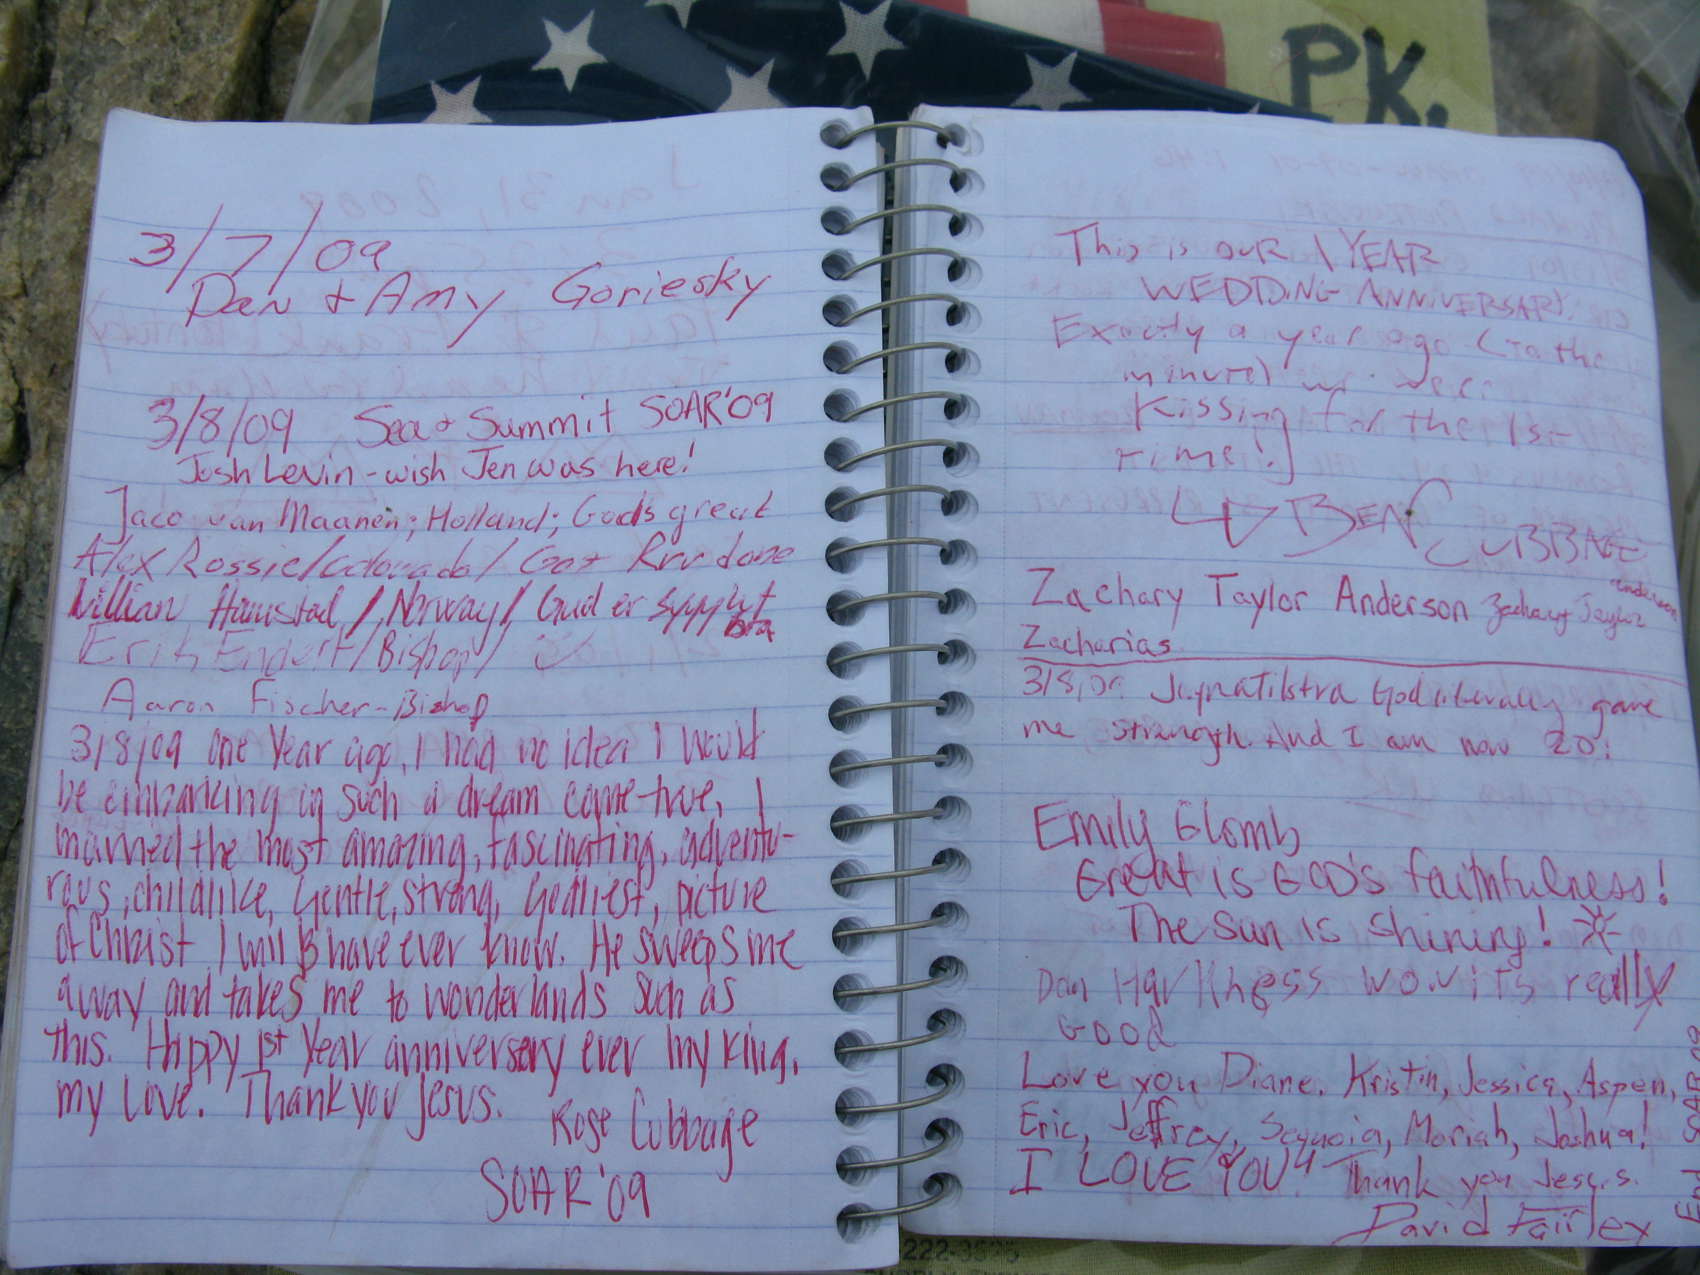 PK.
3/7/09
Dan + Amy Goriesky
3/8/09 Sea + Summit SOAR'09
Josh Levin - wish Jen was here!
Jaco van Maanen; Holland; Gods great
Alex Rossie/Colorado/ Got Rrr done
Lillian Hamstad / Norway / Gud er sykt bra
Erik Endert / Bishop /
Aaron Fischer - Bishop
3/8/09 one year ago, I had no idea I would
be embarking on such a dream come-true, I
married the most amazing, fascinating, adventu-
rous, childlike, gentle, strong, Godliest, picture
of Christ I will have ever know. He sweeps me
away and takes me to wonderlands such as
this. Happy 1st Year anniversery ever my king,
my love. Thank you Jesus.
Rose Cubbage
SOAR '09
This is our 1 YEAR
WEDDING ANNIVERSARY.
Exactly a year ago (to the
minute) we were
Kissing for the 1st
time!
↳ BEN CUBBAGE
Zachary Taylor Anderson Zachary Taylor Anderson
Zacharias
3/8/09 Jayna Tilstra God literally gave
me strength. And I am now 20!
Emily Glomb
Great is GOD's faithfulness!
The sun is shining!
Dan Harkness wow its really
GOOD
Love you Diane, Kristin, Jessica, Aspen,
Eric, Jeffrey, Sequoia, Moriah, Joshua!
I LOVE YOU! Thank you Jesus.
David Fairley
End SOAR 09
222-3535